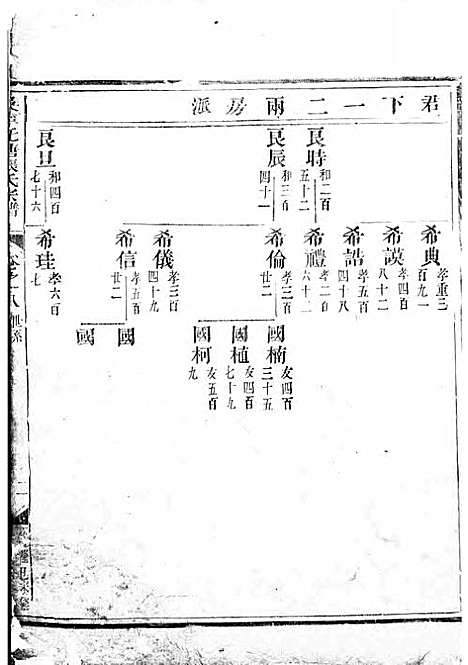 君下一二兩房派
良時 和二百五十二
良辰 和三百四十一
良旦 和四百七十六
希典 孝重三百九一
希謨 孝四百八十二
希誥 孝五百四十八
希禮 孝二百六十二
希倫 孝三百廿二
希儀 孝三百四十九
希信 孝五百廿二
希珪 孝六百七
國楠 友四百三十五
國植 友四百七十九
國柯 友五百九
國
國
氏宗譜
卷之八 世系